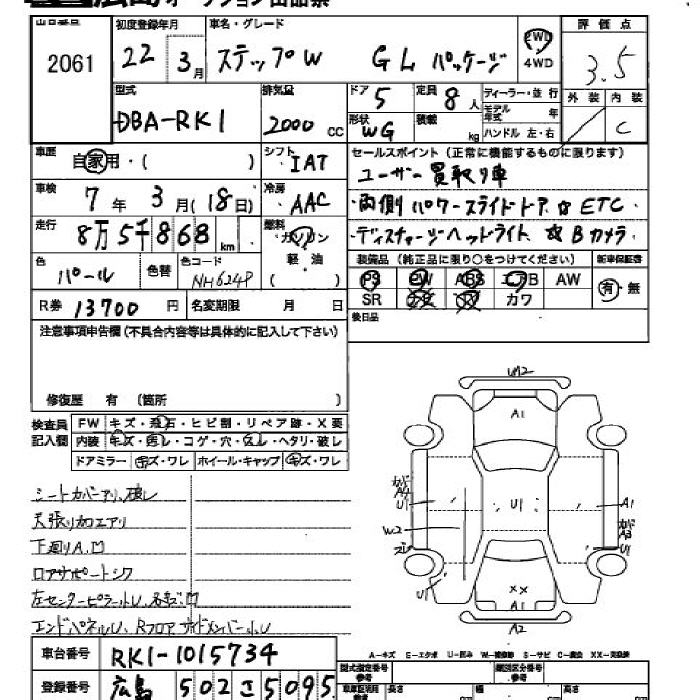 オークション出品票
出品番号 初度登録年月 車名・グレード 評価点
2061 22 3月 ステップW GL パッケージ 2WD 4WD 3.5
型式 排気量 ドア 5 定員 8人 ディーラー・並行 外装 内装
DBA-RK1 2000cc 形状 WG 積載 kg モデル年式 年 ハンドル 左・右 C
車歴 自家用・( ) シフト IAT セールスポイント (正常に機能するものに限ります)
ユーザー買取り車
車検 7年 3月(18日) 冷房 AAC 両側パワースライドドア ☆ ETC
走行 8万5千868km 燃料 ガソリン 軽油 ( ) ディスチャージヘッドライト ☆ Bカメラ
色 パール 色替 色コード NH624P 装備品 (純正品に限り○をつけてください) 新車保証書
PS PW ABS エアB AW 有・無
R券 13700円 名変期限 月 日 SR ナビ TV カワ
後日品
注意事項申告欄(不具合内容等は具体的に記入して下さい)
修復歴 有 (箇所 )
検査員記入欄 FW キズ・飛石・ヒビ割・リペア跡・X要
内装 キズ・汚レ・コゲ・穴・スレ・ヘタリ・破レ
ドアミラー キズ・ワレ ホイール・キャップ キズ・ワレ
シートカバーアリ、破レ
天張り加エアリ
下回りA.凹
ロアサポートシワ
エンドパネルU、Rフロアサイドメンバー小U
UM2
A1
U1
U1
W2
U1
A1
U1
XX
A1
A2
A-キズ E-エクボ U-凹み W-補修跡 S-サビ C-腐食 XX-交換済
車台番号 RK1-1015734
登録番号 広島 502 さ 5095
型式指定番号 参考 類別区分番号 参考
長さ 幅 高さ